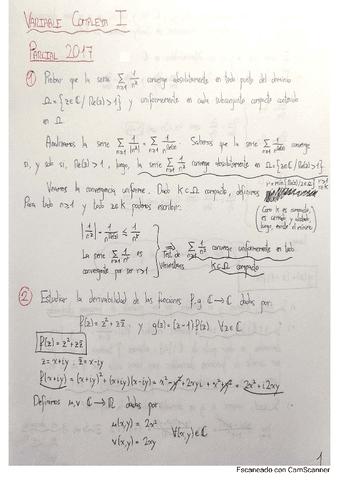 VARIABLE COMPLEJA I
PARCIAL 2017
① Probar que la serie ∑_{n≥1} 1/n^z converge absolutamente en todo punto del dominio
Ω = {z∈ℂ / Re(z)>1} y uniformemente en cada subconjunto compacto contenido
en Ω.
Analizamos la serie ∑_{n≥1} 1/|n^z| = ∑_{n≥1} 1/n^{Re(z)}. Sabemos que la serie ∑_{n≥1} 1/n^{Re(z)} converge
si, y solo si, Re(z)>1, luego, la serie ∑_{n≥1} 1/n^z converge absolutamente en Ω={z∈ℂ/Re(z)>1}.
Veamos la convergencia uniforme. Dado K⊂Ω compacto, definimos r=min{Re(z)/z∈K}>1
Para todo n≥1 y todo z∈K podemos escribir:
(Como K es compacto, es cerrado y acotado, luego, existe el mínimo)
|1/n^z| = 1/n^{Re(z)} ≤ 1/n^r
La serie ∑_{n≥1} 1/n^r es
convergente por ser r>1
⟹ Test de Weierstrass
∑_{n≥1} 1/n^z converge uniformemente en todo
K⊂Ω compacto
② Estudiar la derivabilidad de las funciones f,g: ℂ→ℂ dadas por:
f(z)=z²+zz̄ y g(z)=(z-1)f(z), ∀z∈ℂ
f(z)=z²+zz̄
z=x+iy, z̄=x-iy
f(x+iy)=(x+iy)²+(x+iy)(x-iy)= x²-y²+2xyi+x²+y² = 2x²+i2xy
Definimos u,v: ℂ→ℝ dadas por:
u(x,y)=2x²
v(x,y)=2xy
∀(x,y)∈ℂ
1
Escaneado con CamScanner